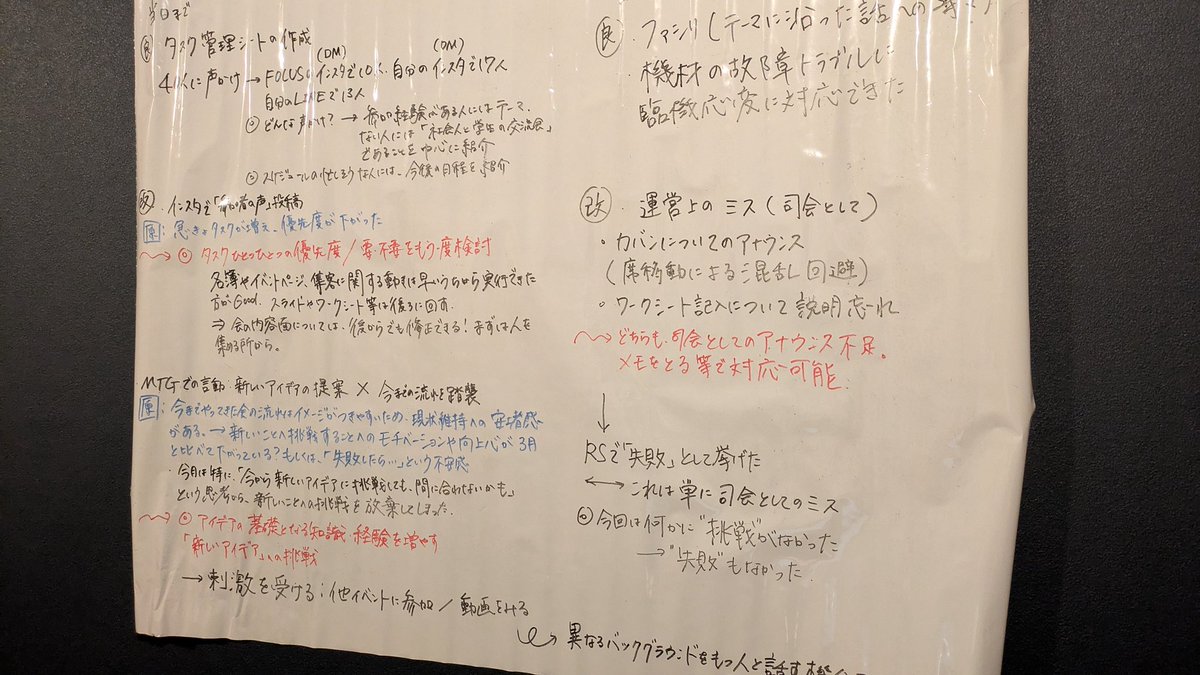 当日まで
良 タスク管理シートの作成
(DM) (DM)
40人に声かけ → FOCUSのインスタで10人、自分のインスタで17人
自分のLINEで13人
◎ どんな声かけ? → 参加経験がある人にはテーマ、
ない人には「社会人と学生の交流会」
であることを中心に紹介
◎ スケジュールの忙しそうな人には、今後の日程を紹介
改 ・インスタで「参加者の声」投稿
原:急きょタスクが増え、優先度が下がった
◎ タスクひとつひとつの優先度/要・不要をもう一度検討
名簿やイベントページ、集客に関する動きは早いうちから実行できた
方がGood. スライドやワークシート等は後ろに回す.
⇒ 会の内容面については、後からでも修正できる!まずは人を
集める所から。
・MTGでの言動:新しいアイデアの提案 × 今までの流れを踏襲
原:今までやってきた会の流れはイメージがつきやすいため、現状維持への安心感
がある。→ 新しいことへ挑戦することへのモチベーションや向上心が3月
と比べて下がっている?もしくは、「失敗したら…」という不安感
・今月は特に、「今から新しいアイデアに挑戦しても、間に合わないかも」
という思考から、新しいことへの挑戦を放棄してしまった.
◎ アイデアの基礎となる知識・経験を増やす
「新しいアイデア」への挑戦
→ 刺激を受ける:他イベントに参加/動画をみる
異なるバックグラウンドをもつ人と話す機会
良 ・ファシリ(テーマに沿った話への
機材の故障トラブルに
臨機応変に対応できた
改 ・運営上のミス(司会として)
・カバンについてのアナウンス
(席移動による混乱回避)
・ワークシート記入について説明忘れ
どちらも、司会としてのアナウンス不足。
メモをとる等で対応可能.
↓
RSで「失敗」として挙げた
↔ これは単に司会としてのミス
◎ 今回は何かに"挑戦"がなかった
→ "失敗"もなかった.